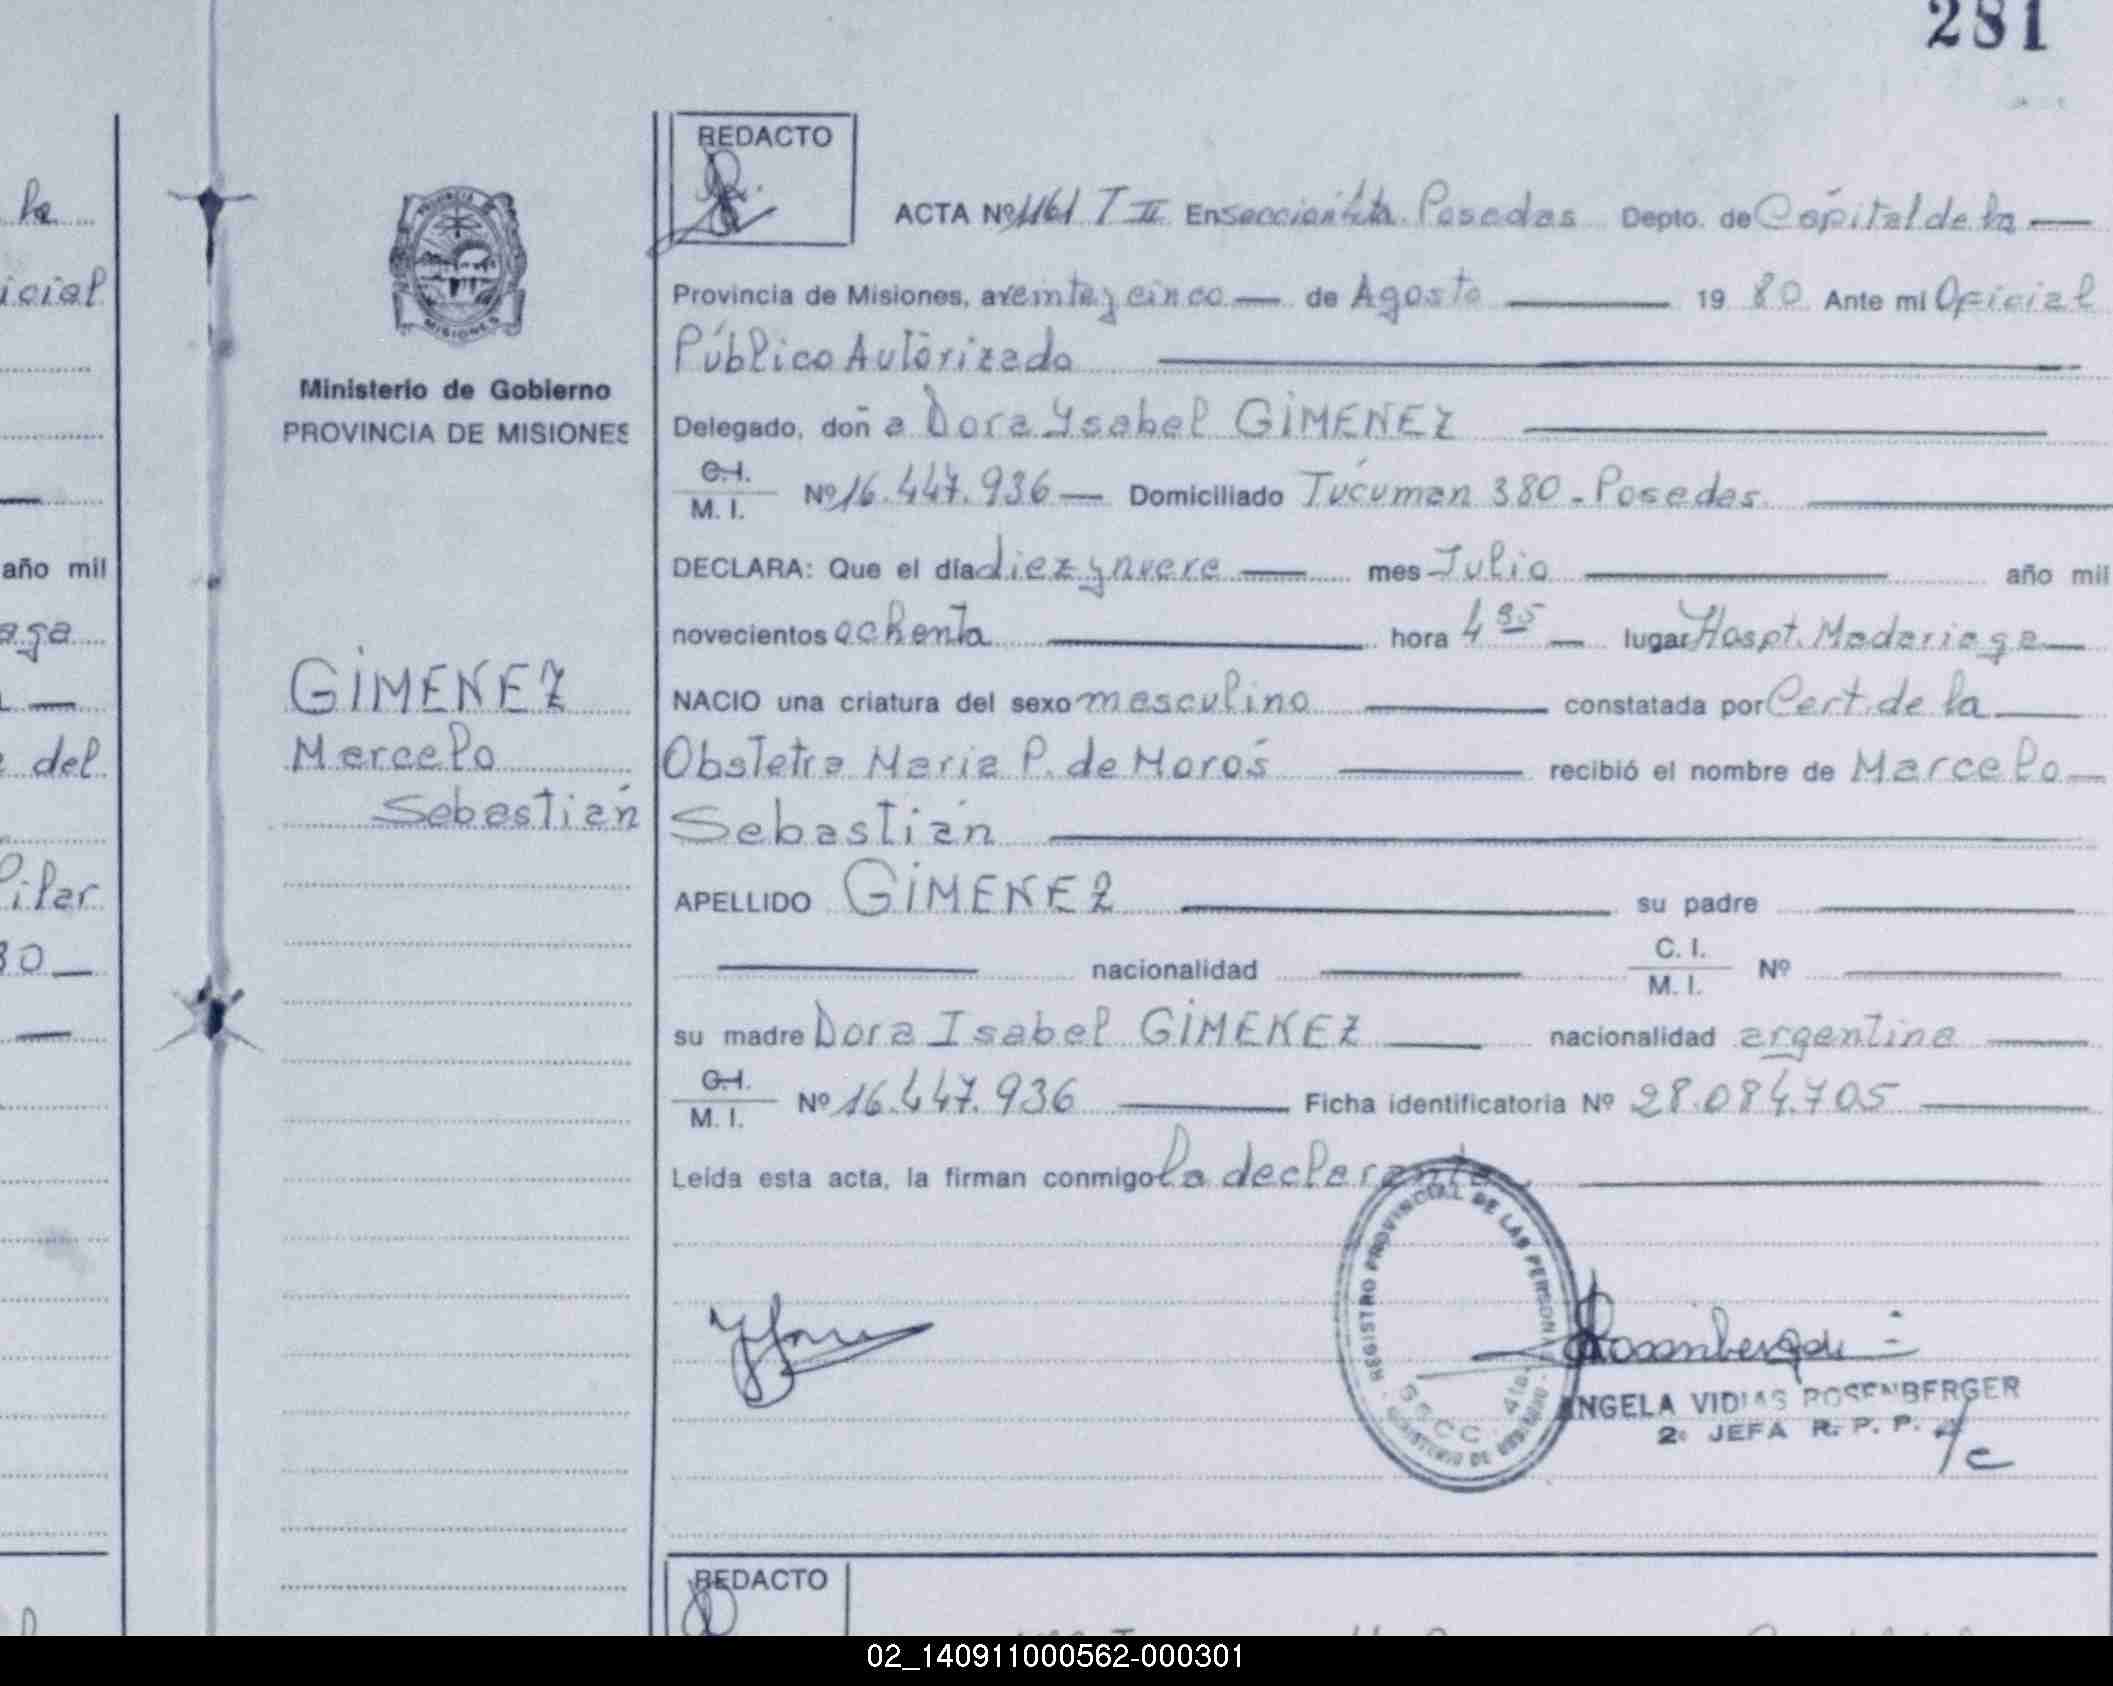 281
la
icial
año mil
aga
del
Pilar
80
PROVINCIA
MISIONES
Ministerio de Gobierno
PROVINCIA DE MISIONES
GIMENEZ
Marcelo
Sebastián
REDACTO
ACTA Nº 1161 T II En sección 4ta. Posadas Depto. de Capital de la
Provincia de Misiones, a veinte y cinco de Agosto 19 80 Ante mi Oficial
Público Autorizado
Delegado, doñ a Dora Ysabel GIMENEZ
C.I. M. I. Nº 16.447.936 Domiciliado Tucuman 380 - Posadas
DECLARA: Que el día diez y nueve mes Julio año mil
novecientos ochenta hora 4 35 lugar Hospt. Madariaga
NACIO una criatura del sexo masculino constatada por Cert. de la
Obstetra Maria P. de Moros recibió el nombre de Marcelo
Sebastián
APELLIDO GIMENEZ su padre
nacionalidad C. I. M. I. Nº
su madre Dora Isabel GIMENEZ nacionalidad argentina
C.I. M. I. Nº 16.447.936 Ficha identificatoria Nº 28.084.705
Leída esta acta, la firman conmigo la declarante
REGISTRO PROVINCIAL DE LAS PERSONAS
SECC. 4ta.
MINISTERIO DE GOBIERNO
ANGELA VIDIAS ROSENBERGER
2º JEFA R. P. P.
A/c
REDACTO
02_140911000562-000301